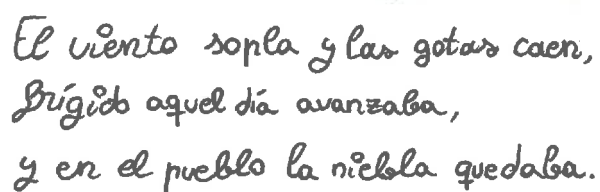 El viento sopla y las gotas caen,
Brígido aquel día avanzaba,
y en el pueblo la niebla quedaba.